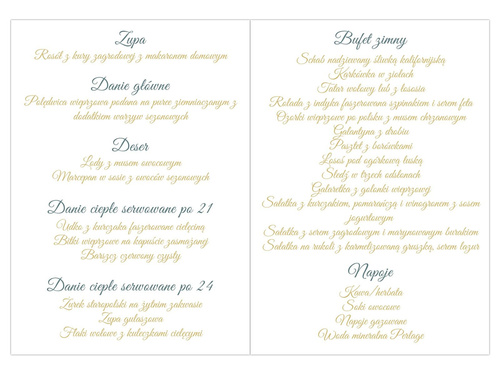 Zupa
Rosół z kury zagrodowej z makaronem domowym
Danie główne
Polędwica wieprzowa podana na puree ziemniaczanym z
dodatkiem warzyw sezonowych
Deser
Lody z musem owocowym
Marcepan w sosie z owoców sezonowych
Danie ciepłe serwowane po 21
Udko z kurczaka faszerowane cielęciną
Bitki wieprzowe na kapuście zasmażanej
Barszcz czerwony czysty
Danie ciepłe serwowane po 24
Żurek staropolski na żytnim zakwasie
Zupa gulaszowa
Flaki wołowe z kuleczkami cielęcymi
Bufet zimny
Schab nadziewany śliwką kalifornijską
Karkówka w ziołach
Tatar wołowy lub z łososia
Rolada z indyka faszerowana szpinakiem i serem feta
Ozorki wieprzowe po polsku z musem chrzanowym
Galantyna z drobiu
Pasztet z borówkami
Łosoś pod ogórkową łuską
Śledź w trzech odsłonach
Galaretka z golonki wieprzowej
Sałatka z kurczakiem, pomarańczą i winogronem z sosem
jogurtowym
Sałatka z serem zagrodowym i marynowanym burakiem
Sałatka na rukoli z karmelizowaną gruszką, serem lazur
Napoje
Kawa/herbata
Soki owocowe
Napoje gazowane
Woda mineralna Perlage